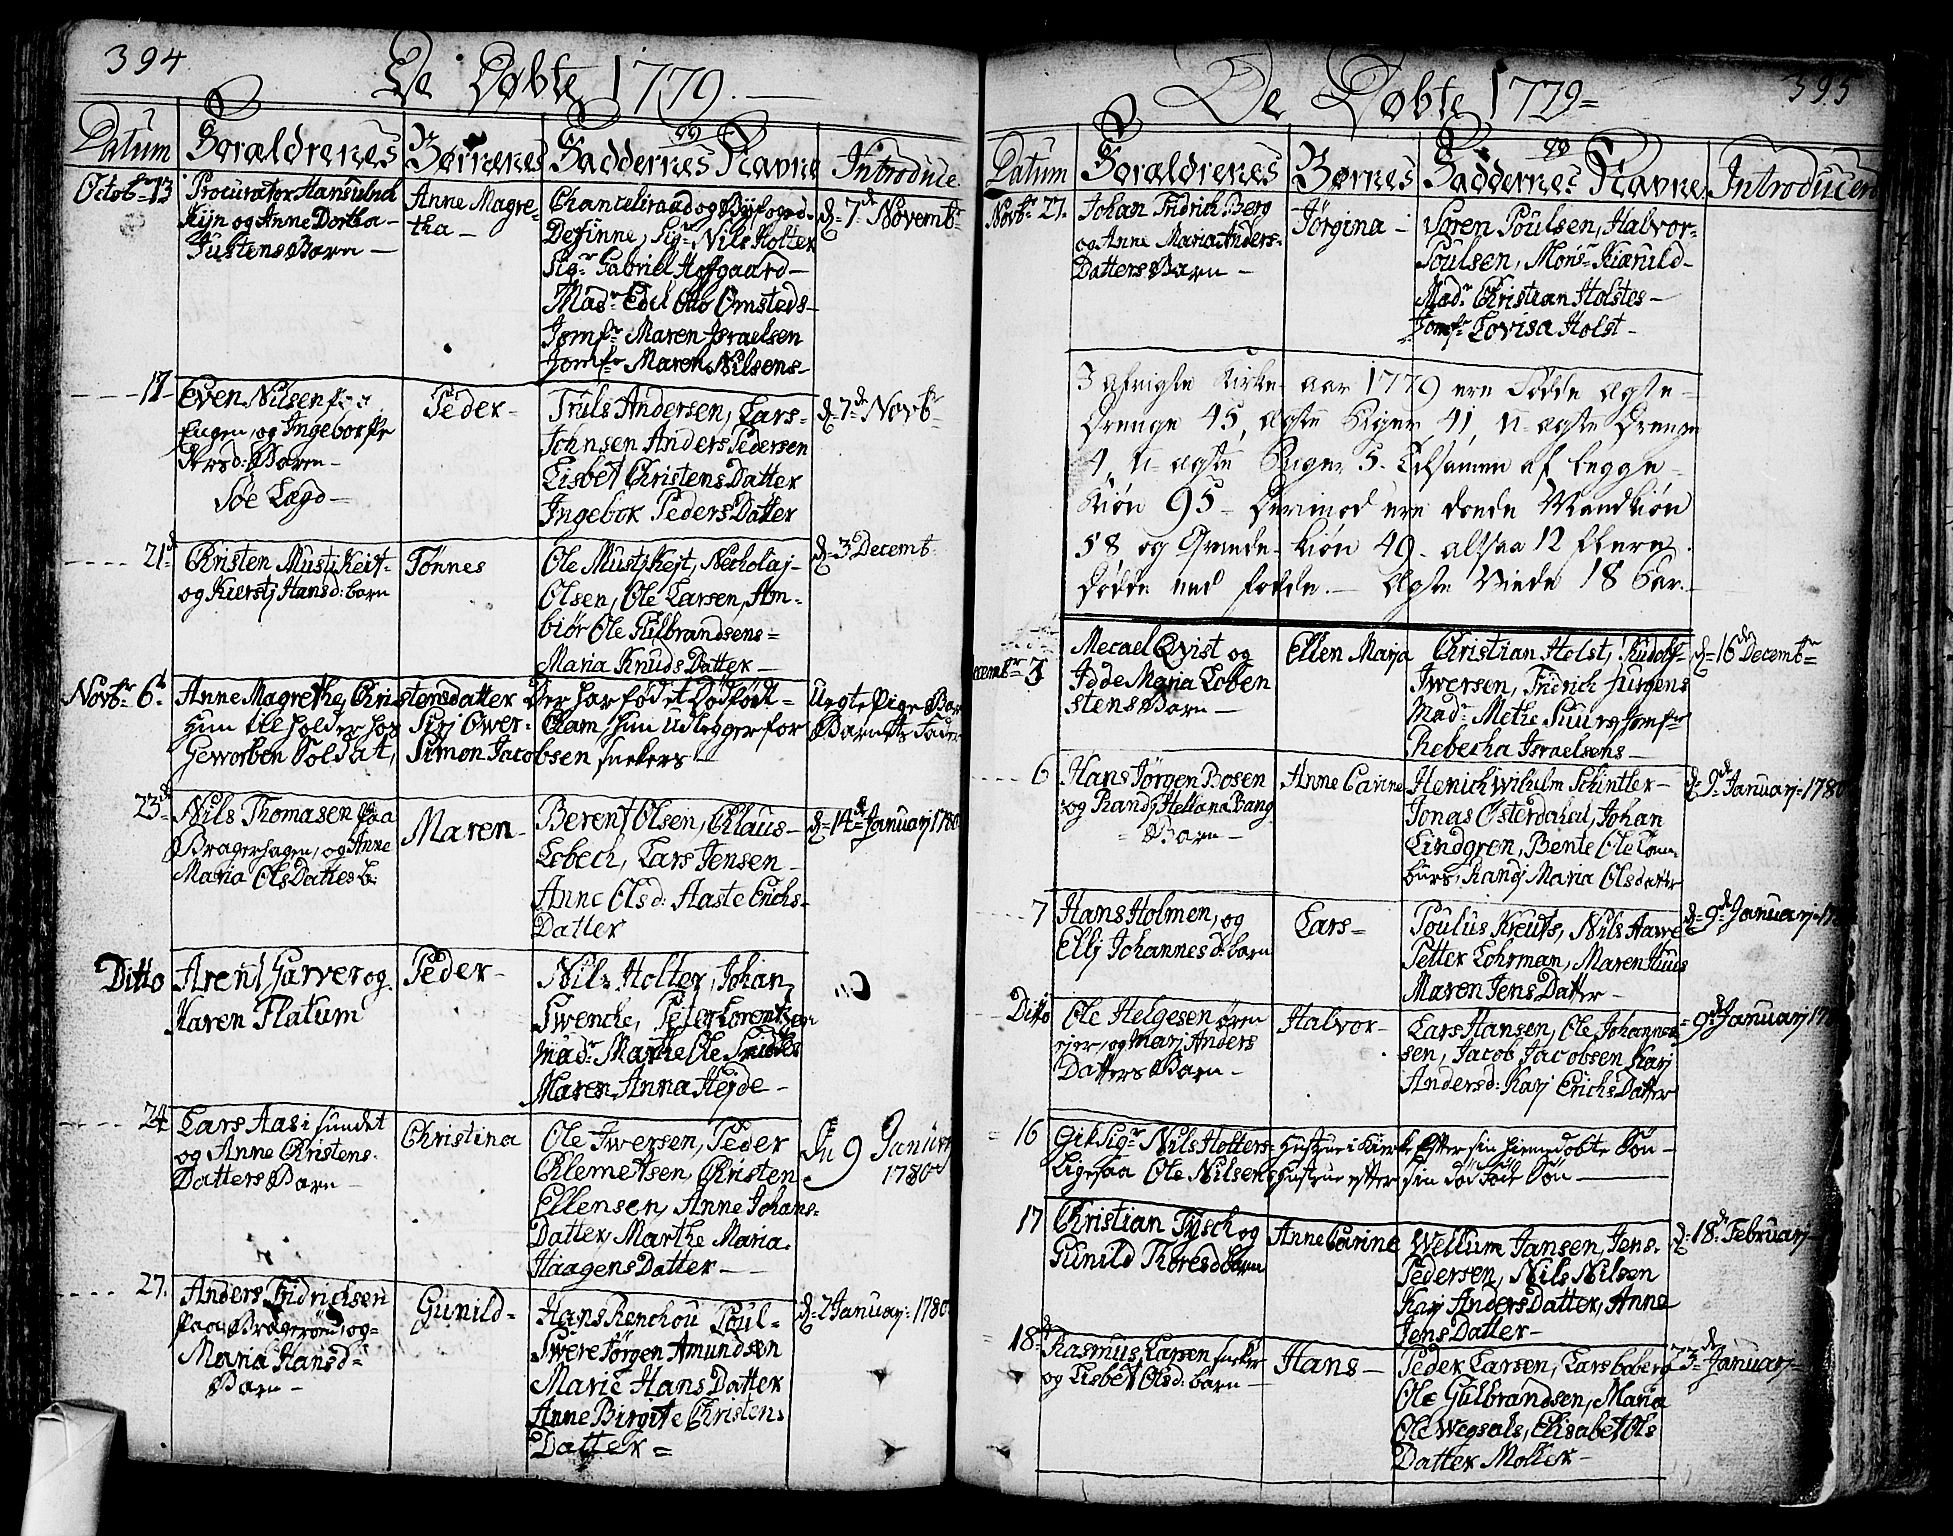 394
De Døbte 1779.
Datum Forældrenes Børnenes Faddernes Navne Introduce.
Octobr 13
Procurator Hans
Kijn og Anne Dortha
Justens Barn
Anne Magre-
tha
Chanceliraad og Byfoged
Definne, Sigr Nils Holter
Sigr Gabriel Hofgaard
Madr Edel Otto Omsteds
Jomfr Maren Israelsen
Jomfr Maren Nilsens
d. 7d Novembr
17
Even Nilsen paa
Engen, og Ingebor Pe
dersd: Barn
Søe Lægd
Peder
Truls Andersen, Lars
Johnsen Anders Pedersen
Lisbet Christens Datter
Ingebor Peders Datter
d. 7d Novbr
21d
Christen Mustj Keit
og Kierstj Hansd: barn
Tønnes
Ole Mustj Kejt, Necholaj
Olsen, Ole Larsen, Am-
biør Ole Gulbrandsens
Maria Knuds Datter
d. 3d Decemb
Novbr 6t
Anne Magrethe, Christensdatter Der har fødet Dødfødt
Hun til holder hos Sirj Ower Elam, hun udlegger for
Geworben Soldat, Simon Jacobsen
Uegte Pige Bar
Barnets Fader
23d
Nils Thomasen paa
Bragerhagen, og Anne
Maria Ols Datters b:
Maren
Berent Olsen, Claus
Lobech, Lars Jensen
Anne Olsd: Aaste Erichs
Datter
d. 14d Januarj 1780
Ditto
Arent Garver og
Karen Flatum
Peder
Nils Holter, Johan
Swencke, Peter Lorentzen
Madr Marthe Ole
Maren Anna Hejde
24
Lars Aas i sundet
og Anne Christens
Datters Barn
Christina
Ole Iwersen, Peder
Clemetsen Christen
Ellensen, Anne Johans
Datter, Marthe Maria
Haagens Datter
9 Januri
1780
27.
Anders Fridrichsen
paa Bragerøen, og
Maria Hansd
Barn
Gunild
Hans Renchou Poul
Swere Jørgen Amundsen
Marie Hans Datter
Anne Birgite Christens
Datter
d. 2 Januarj 1780
De Døbte 1779
395
Datum Forældrenes Børnes Faddernes Navne Introducere
Novbr 27.
Johan Fridrich Berg
og Anne Maria Anders
Datters Barn
Jørgina
Søren Poulsen, Halvor
Poulsen, Mons Kiæruld
Madr Christian Holstes
Jomfr Lovisa Holst
I afvigte Kirke aar 1779 ere Fødde Ægte
Drenge 45, Ægte Piger 41, U-ægte Drenge
4, U-ægte Piger 5. Tilsamen af begge
Kiøn 95 - Derimod ere døde Mandkiøn
58 og Qvinde Kiøn 49. altsaa 12 flere
dødde end fødde. Ægte Viede 18 Par.
Decembr 3
Mecael Qvist og
Idde Maria Loben
stens Barn
Ellen Marja
Christian Holst, Rudolf
Iwersen, Fridrich Jurgens
Madr Methe Suurs Jomfr
Rebecha Israelsens
d. 16de Decembr
6
Hans Jørgen Bosen
og Randj Hellana Bang
Barn
Anne Carine
Henich Wilhelm Schintler
Jonas Østerdahel, Johan
Lindgren, Bente Ole
Randj Maria Olsdatter
d. 9d Januarj 1780
7
Hans Holmen, og
Ellj Johannes d: barn
Lars
Poulus Kreuts, Nils Aawe
Petter Lohrman, Maren Huus
Maren Jens Datter
d. 9d Januarj
Ditto
Ole Helgesen øren
ejer, og Marj Anders
Datters Barn
Halvor
Lars Hansen, Ole Johanne
sen, Jacob Jacobsen Karj
Andersd: Karj Erichs Datter
9d Januarj
16
Gik Sigr Nils Holters Hustrue i Kirke Efter sin hiemedøbte Søn
Ligesaa Ole Nilsens Hustrue efter sin død Fød Søn
17
Christian Tysch og
Gunild Thoresd barn
Anne Cairine
Wellum Jansen, Jens
Pedersen, Nils Nilsen
Karj Anders Datter, Anne
Jens Datter
d. 18d Februarj
18d
Rasmus Larsen
og Lisbet Olsd: barn
Hans
Peder Larsen, Lars boberg
Ole Gulbrandsen, Maria
Ole Wegsals, Elisabet Ols
Datter Moller
23d Januarj